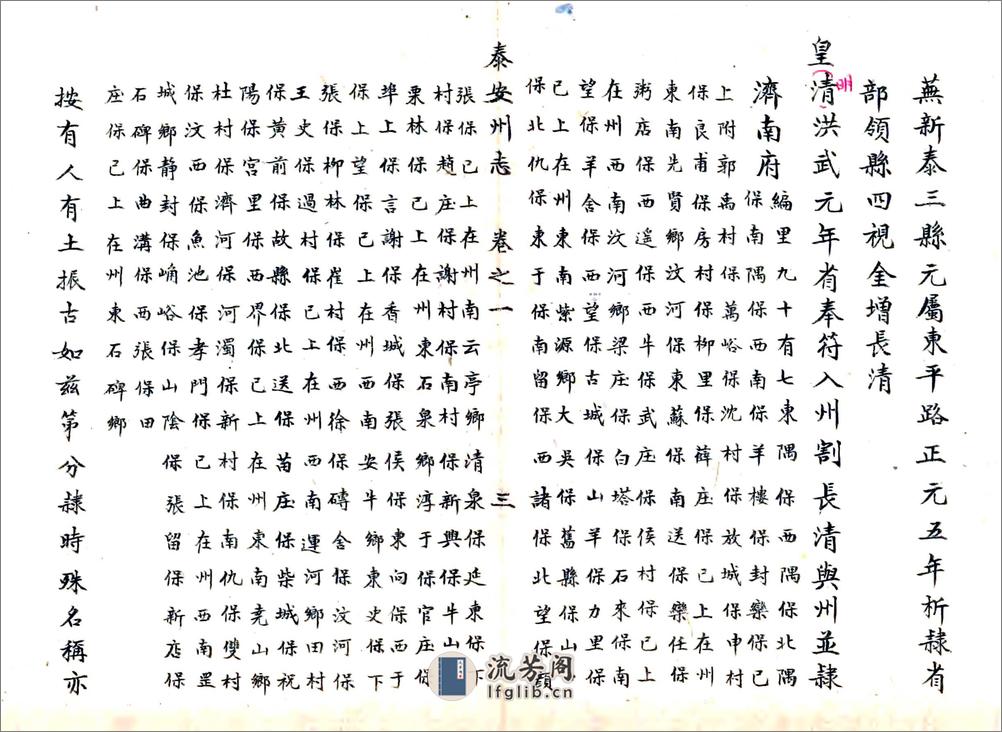 蕪新泰三縣元屬東平路正元五年析隸省
部領縣四視金增長清
皇清洪武元年省奉符入州割長清與州並隸
明
濟南府編里九十有七東隅保西隅保北隅
保南隅保西南保羊樓保封欒保已
上附郭禹村保萬峪保沈村保放城保申村
保良甫保房村保柳里保薛庄保已上在州
東南先賢鄉汶河保東蘇保南送保欒任保
粥店保西遥保西牛保武庄保侯村保已上
在州西南汶河鄉梁庄保白塔保石來保南
望保羊舍保西望保古城保山羊保力里保
已上在州東南紫源鄉大吳保舊縣保山
保北仇保東于保南留保西諸保北望保顔
泰安州志 卷之一 三
張保已上在州南云亭鄉清泉保延東保下
村保趙庄保謝村保南村保新興保牛山
栗林保已上在州東石泉鄉淳于保官庄保
埠上保言謝保香城保張侯保東向保西于
保上望保已上在州西南安牛鄉東史保下
張保柳林保崔村保西徐保磚舍保汶河保
王史保過村保已上在州西南運河鄉田村
保黃前保故縣保北送保苗庄保柴城保祝
陽保宮里保西界保已上在州東南堯山鄉
杜村保濟河保河濁保新村保南仇保雙村
保汶西保魚池保孝門保已上在州西南罡
城鄉静封保崅峪保山陰保張留保新店保
石碑保曲溝保西張保田
座保已上在州東石碑鄉
按有人有土振古如兹第分隸時殊名稱亦
流芳阁
lfglib.cn